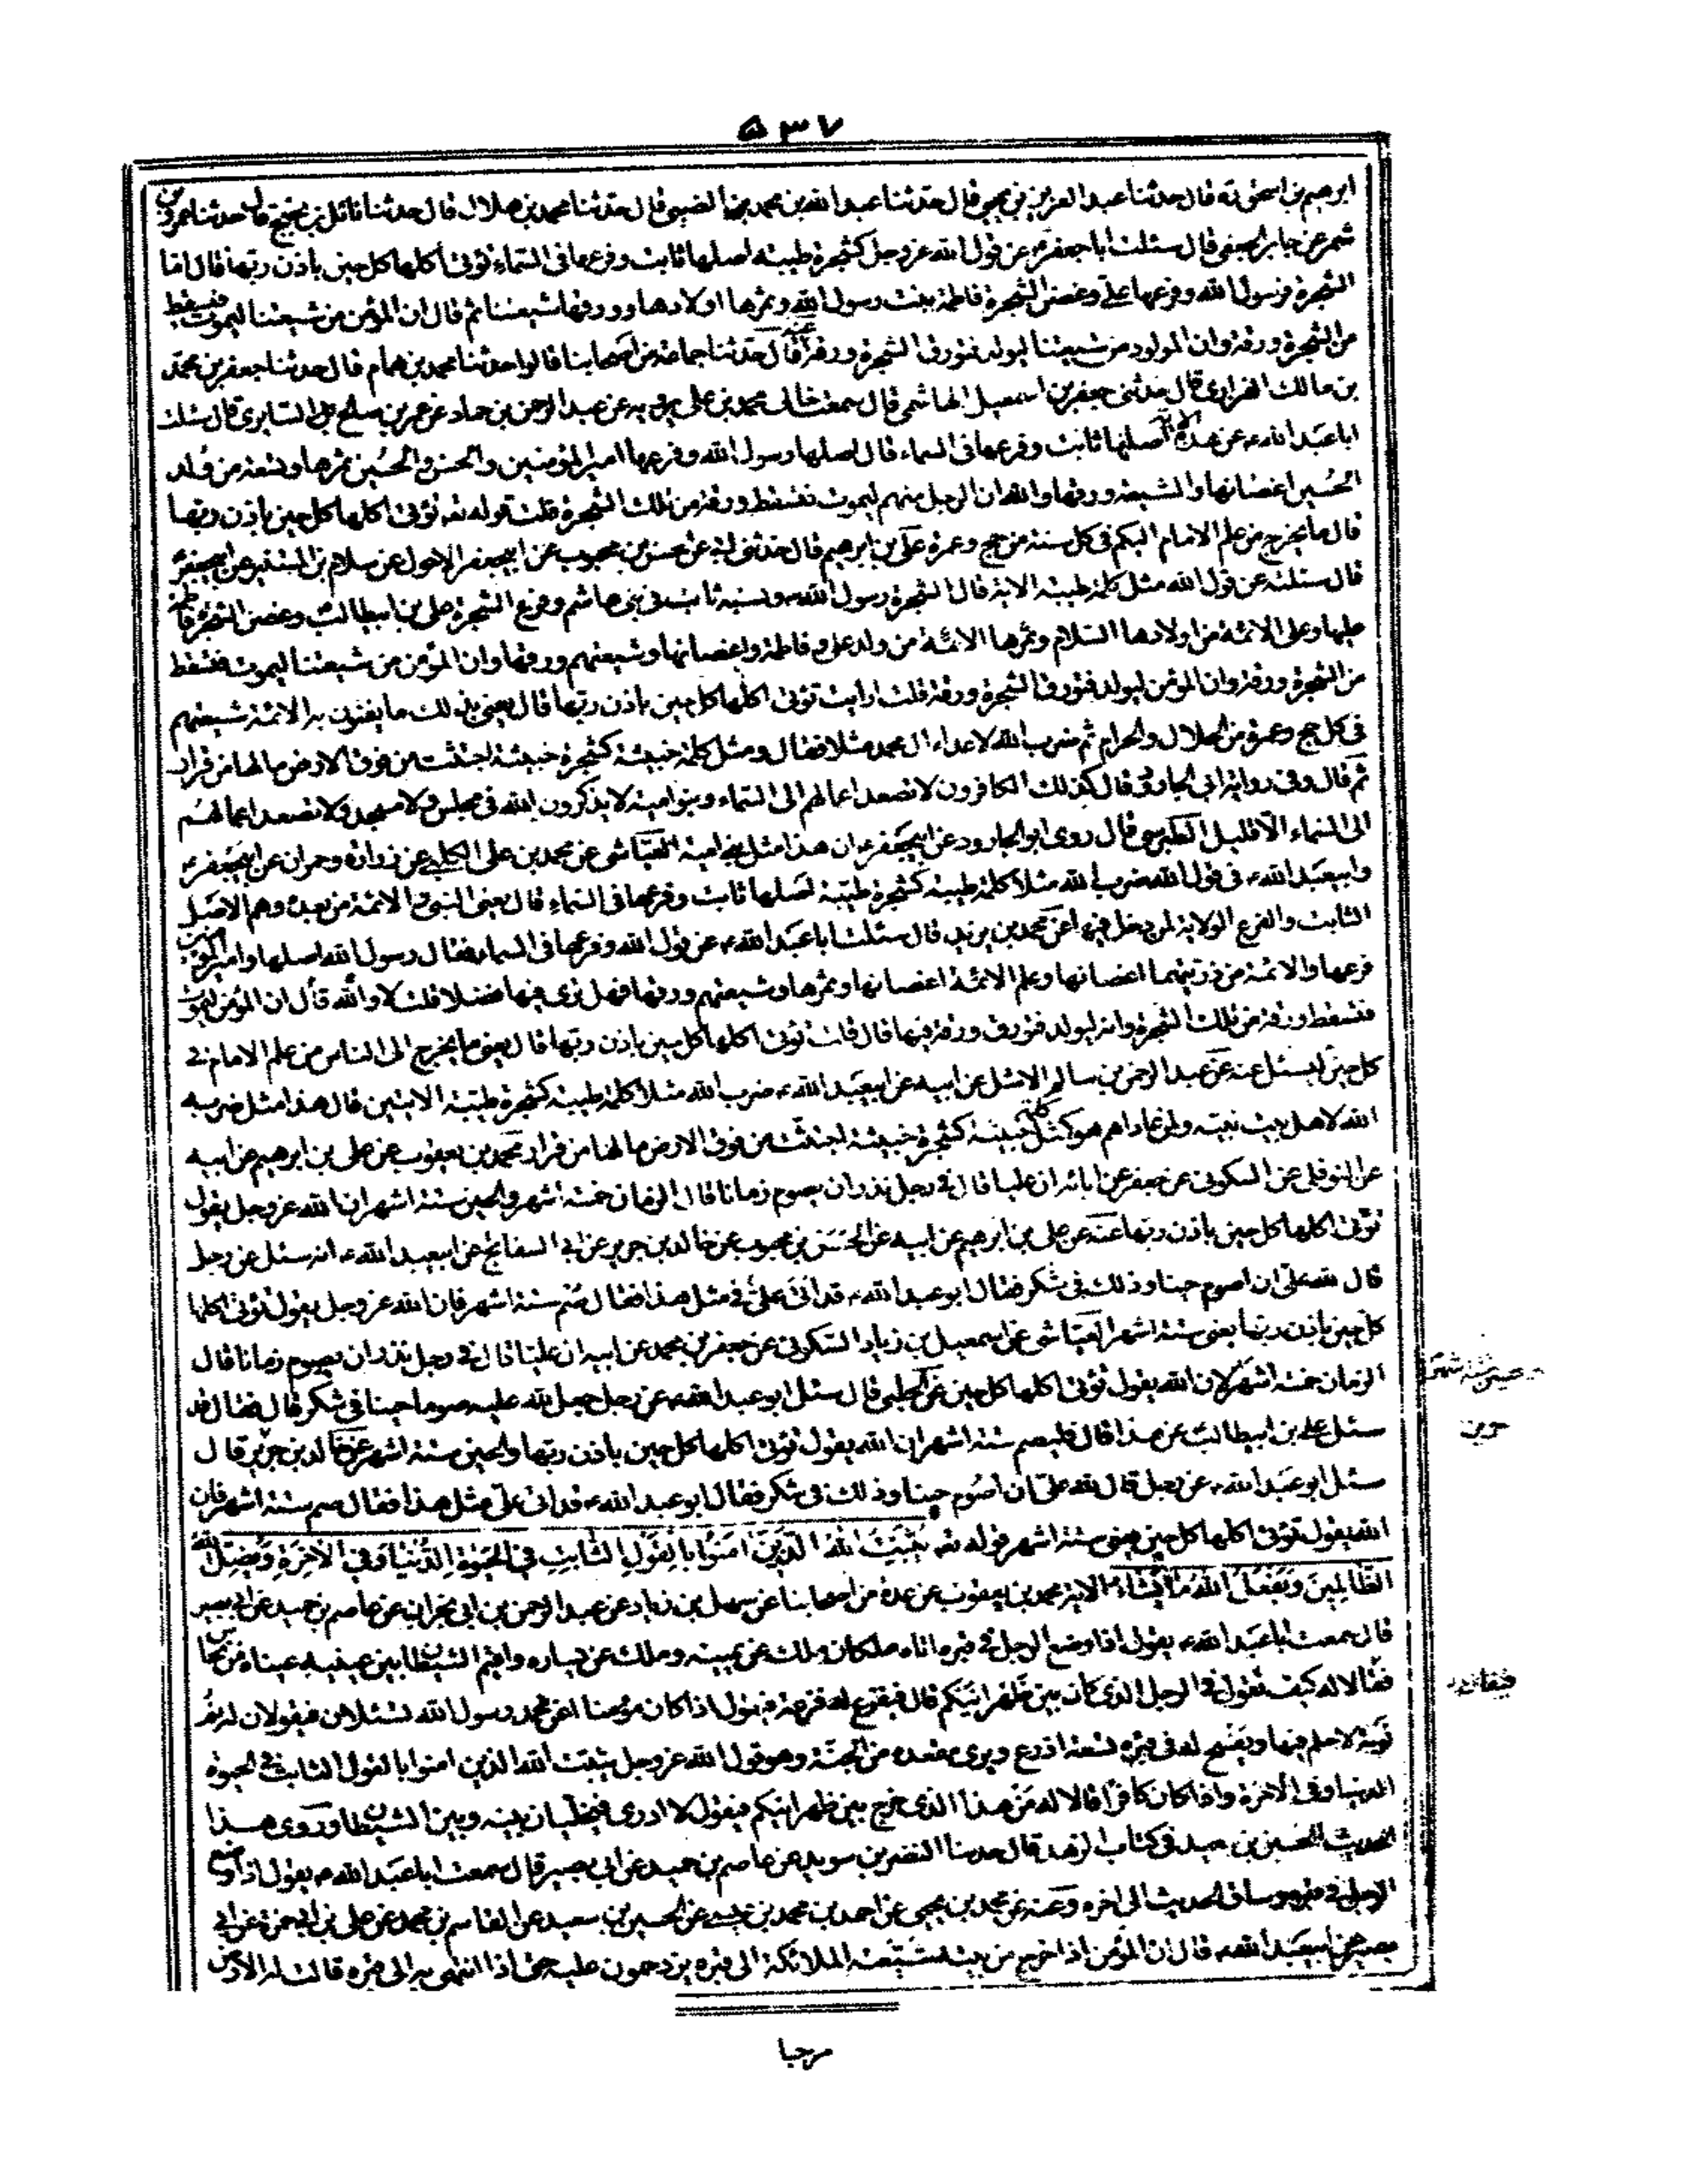 ٥٣٧
ابرهيم بن اسحق ره قال حدثنا عبد العزيز بن يحيى قال حدثنا عبد الله بن محمد الضبى قال حدثنا محمد بن هلال قال حدثنا نائل بن نجيح قال حدثنا عمرو بن
شمر عن جابر الجعفى قال سئلت ابا جعفر ع عن قول الله عز وجل كشجرة طيبة اصلها ثابت وفرعها فى السماء تؤتى اكلها كل حين باذن ربها قال اما
الشجرة فرسول الله وفرعها على وغصن الشجرة فاطمة بنت رسول الله وثمرها اولادها وورقها شيعتنا ثم قال ان المؤمن من شيعتنا ليموت فتسقط
من الشجرة ورقة وان المولود من شيعتنا ليولد فتورق الشجرة ورقة قال حدثنا جماعة من اصحابنا قالوا حدثنا محمد بن همام قال حدثنا جعفر بن محمد
بن مالك الفزارى قال حدثنى جعفر بن اسمعيل الهاشمى قال سمعت خالى محمد بن على يرويه عن عبد الرحمن بن حماد عن عمر بن صالح السابرى قال سئلت
ابا عبد الله ع عن هذه الاية اصلها ثابت وفرعها فى السماء قال اصلها رسول الله وفرعها امير المؤمنين والحسن والحسين ثمرها وتسعة من ولد
الحسين اغصانها والشيعة ورقها والله ان الرجل منهم ليموت فتسقط ورقة من تلك الشجرة قلت قوله تعه تؤتى اكلها كل حين باذن ربها
قال ما يخرج من علم الامام اليكم فى كل سنة من حج وعمرة على بن ابرهيم قال حدثنى ابى عن حسن بن محبوب عن ابيجعفر الاحول عن سلام بن المستنير عن ابيجعفر ع
قال سئلته عن قول الله مثل كلمة طيبة الاية قال الشجرة رسول الله ص ونسبه ثابت فى بنى هاشم وفرع الشجرة على بن ابيطالب وغصن الشجرة فاطمة
عليها وعلى الائمة من اولادها السلام وثمرها الائمة من ولد على وفاطمة واغصانها وشيعتهم ورقها وان المؤمن من شيعتنا ليموت فتسقط
من الشجرة ورقة وان المؤمن ليولد فتورق الشجرة ورقة قلت ارايت تؤتى اكلها كل حين باذن ربها قال يعنى بذلك ما يفتون به الائمة شيعتهم
فى كل حج وعمرة من الحلال والحرام ثم ضرب الله لاعداء ال محمد مثلا فقال ومثل كلمة خبيثة كشجرة خبيثة اجتثت من فوق الارض ما لها من قرار
ثم قال وفى رواية ابى الجارود قال كذلك الكافرون لا تصعد اعمالهم الى السماء وبنو امية لا يذكرون الله فى مجلس ولا مسجد ولا تصعد اعمالهم
الى السماء الا قليل الطبرسى قال روى ابو الجارود عن ابيجعفر ع ان هذا مثل بنى امية العياشى عن محمد بن على الحلبى عن زرارة وحمران عن ابيجعفر ع
وابيعبد الله ع فى قول الله ضرب الله مثلا كلمة طيبة كشجرة طيبة اصلها ثابت وفرعها فى السماء قال يعنى النبى والائمة من بعده وهم الاصل
الثابت والفرع الولاية لمن دخل فيها عن محمد بن يزيد قال سئلت ابا عبد الله ع عن قول الله وفرعها فى السماء فقال رسول الله اصلها وامير المؤمنين
فرعها والائمة من ذريتهما اغصانها وعلم الائمة اغصانها وثمرها وشيعتهم ورقها فهل ترى فيها فضلا قلت لا والله قال ان المؤمن ليموت
فتسقط ورقة من تلك الشجرة وانه ليولد فتورق ورقة فيها قال قلت تؤتى اكلها كل حين باذن ربها قال يعنى ما يخرج الى الناس من علم الامام فى
كل حين يسئل عنه عن عبد الرحمن بن سالم الاشل عن ابيه عن ابيعبد الله ع ضرب الله مثلا كلمة طيبة كشجرة طيبة الايتين قال هذا مثل ضربه
الله لاهل بيت نبيه ولمن عاداهم هو كمثل كلمة خبيثة كشجرة خبيثة اجتثت من فوق الارض ما لها من قرار محمد بن يعقوب عن على بن ابرهيم عن ابيه
عن النوفلى عن السكونى عن جعفر عن ابائه ان عليا قال فى رجل نذر ان يصوم زمانا قال الزمان خمسة اشهر والحين ستة اشهر ان الله عز وجل يقول
تؤتى اكلها كل حين باذن ربها عنه عن على بن ابرهيم عن ابيه عن الحسن بن محبوب عن خالد بن جرير عن ابى عن ابيعبد الله ع انه سئل عن رجل
قال لله على ان اصوم حينا وذلك فى شكر فقال ابو عبد الله ع قد اتى على فى مثل هذا فقال صم ستة اشهر فان الله عز وجل يقول تؤتى اكلها
كل حين باذن ربها يعنى ستة اشهر العياشى عن اسمعيل بن زياد السكونى عن جعفر بن محمد عن ابيه ان عليا قال فى رجل نذر ان يصوم زمانا قال
الزمان خمسة اشهر لان الله يقول تؤتى اكلها كل حين عن الحلبى قال سئل ابو عبد الله ع عن رجل جعل لله عليه صوما حينا فى شكر قال فقال قد
سئل على بن ابيطالب عن هذا قال فليصم ستة اشهر ان الله يقول تؤتى اكلها كل حين باذن ربها والحين ستة اشهر عن خالد بن جرير قال
سئل ابو عبد الله ع عن رجل قال لله على ان اصوم حينا وذلك فى شكر فقال ابو عبد الله ع قد اتى على مثل هذا فقال صم ستة اشهر فان
الله يقول تؤتى اكلها كل حين يعنى ستة اشهر قوله تعه يُثَبِّتُ اللهُ الَّذِينَ امَنُوا بِالْقَوْلِ الثَّابِتِ فِي الْحَيوةِ الدُّنْيَا وَفِي الْاخِرَةِ وَيُضِلُّ اللهُ
الظَّالِمِينَ وَيَفْعَلُ اللهُ مَا يَشَاءُ الاية محمد بن يعقوب عن عدة من اصحابنا عن سهل بن زياد عن عبد الرحمن بن ابى نجران عن عاصم بن حميد عن ابى بصير
قال سمعت ابا عبد الله ع يقول اذا وضع الرجل فى قبره اتاه ملكان ملك عن يمينه وملك عن يساره واقيم الشيطان بين عينيه عيناه من نحاس
فقالا له كيف تقول فى الرجل الذى كان بين ظهرانيكم قال فيفزع له فزعة فيقول اذا كان مؤمنا اعن محمد رسول الله تسئلان فيقولان له نم
نومة لا حلم فيها ويفسح له فى قبره تسعة اذرع ويرى مقعده من الجنة وهو قول الله عز وجل يثبت الله الذين امنوا بالقول الثابت فى الحيوة
الدنيا وفى الاخرة واذا كان كافرا قالا له من هذا الذى خرج بين ظهرانيكم فيقول لا ادرى فيخليان بينه وبين الشيطان وروى هذا
الحديث الحسين بن سعيد فى كتاب الزهد قال حدثنا النضر بن سويد عن عاصم بن حميد عن ابى بصير قال سمعت ابا عبد الله ع يقول اذا وضع
الرجل فى قبره وساق الحديث الى اخره وعنه عن محمد بن يحيى عن احمد بن محمد بن عيسى عن الحسين بن سعيد عن القاسم بن محمد عن على بن ابى حمزة عن ابى
بصير عن ابيعبد الله ع قال ان المؤمن اذا اخرج من بيته شيعته الملائكة الى قبره يزدحمون عليه حتى اذا انتهى به الى قبره قالت له الارض
مرحبا